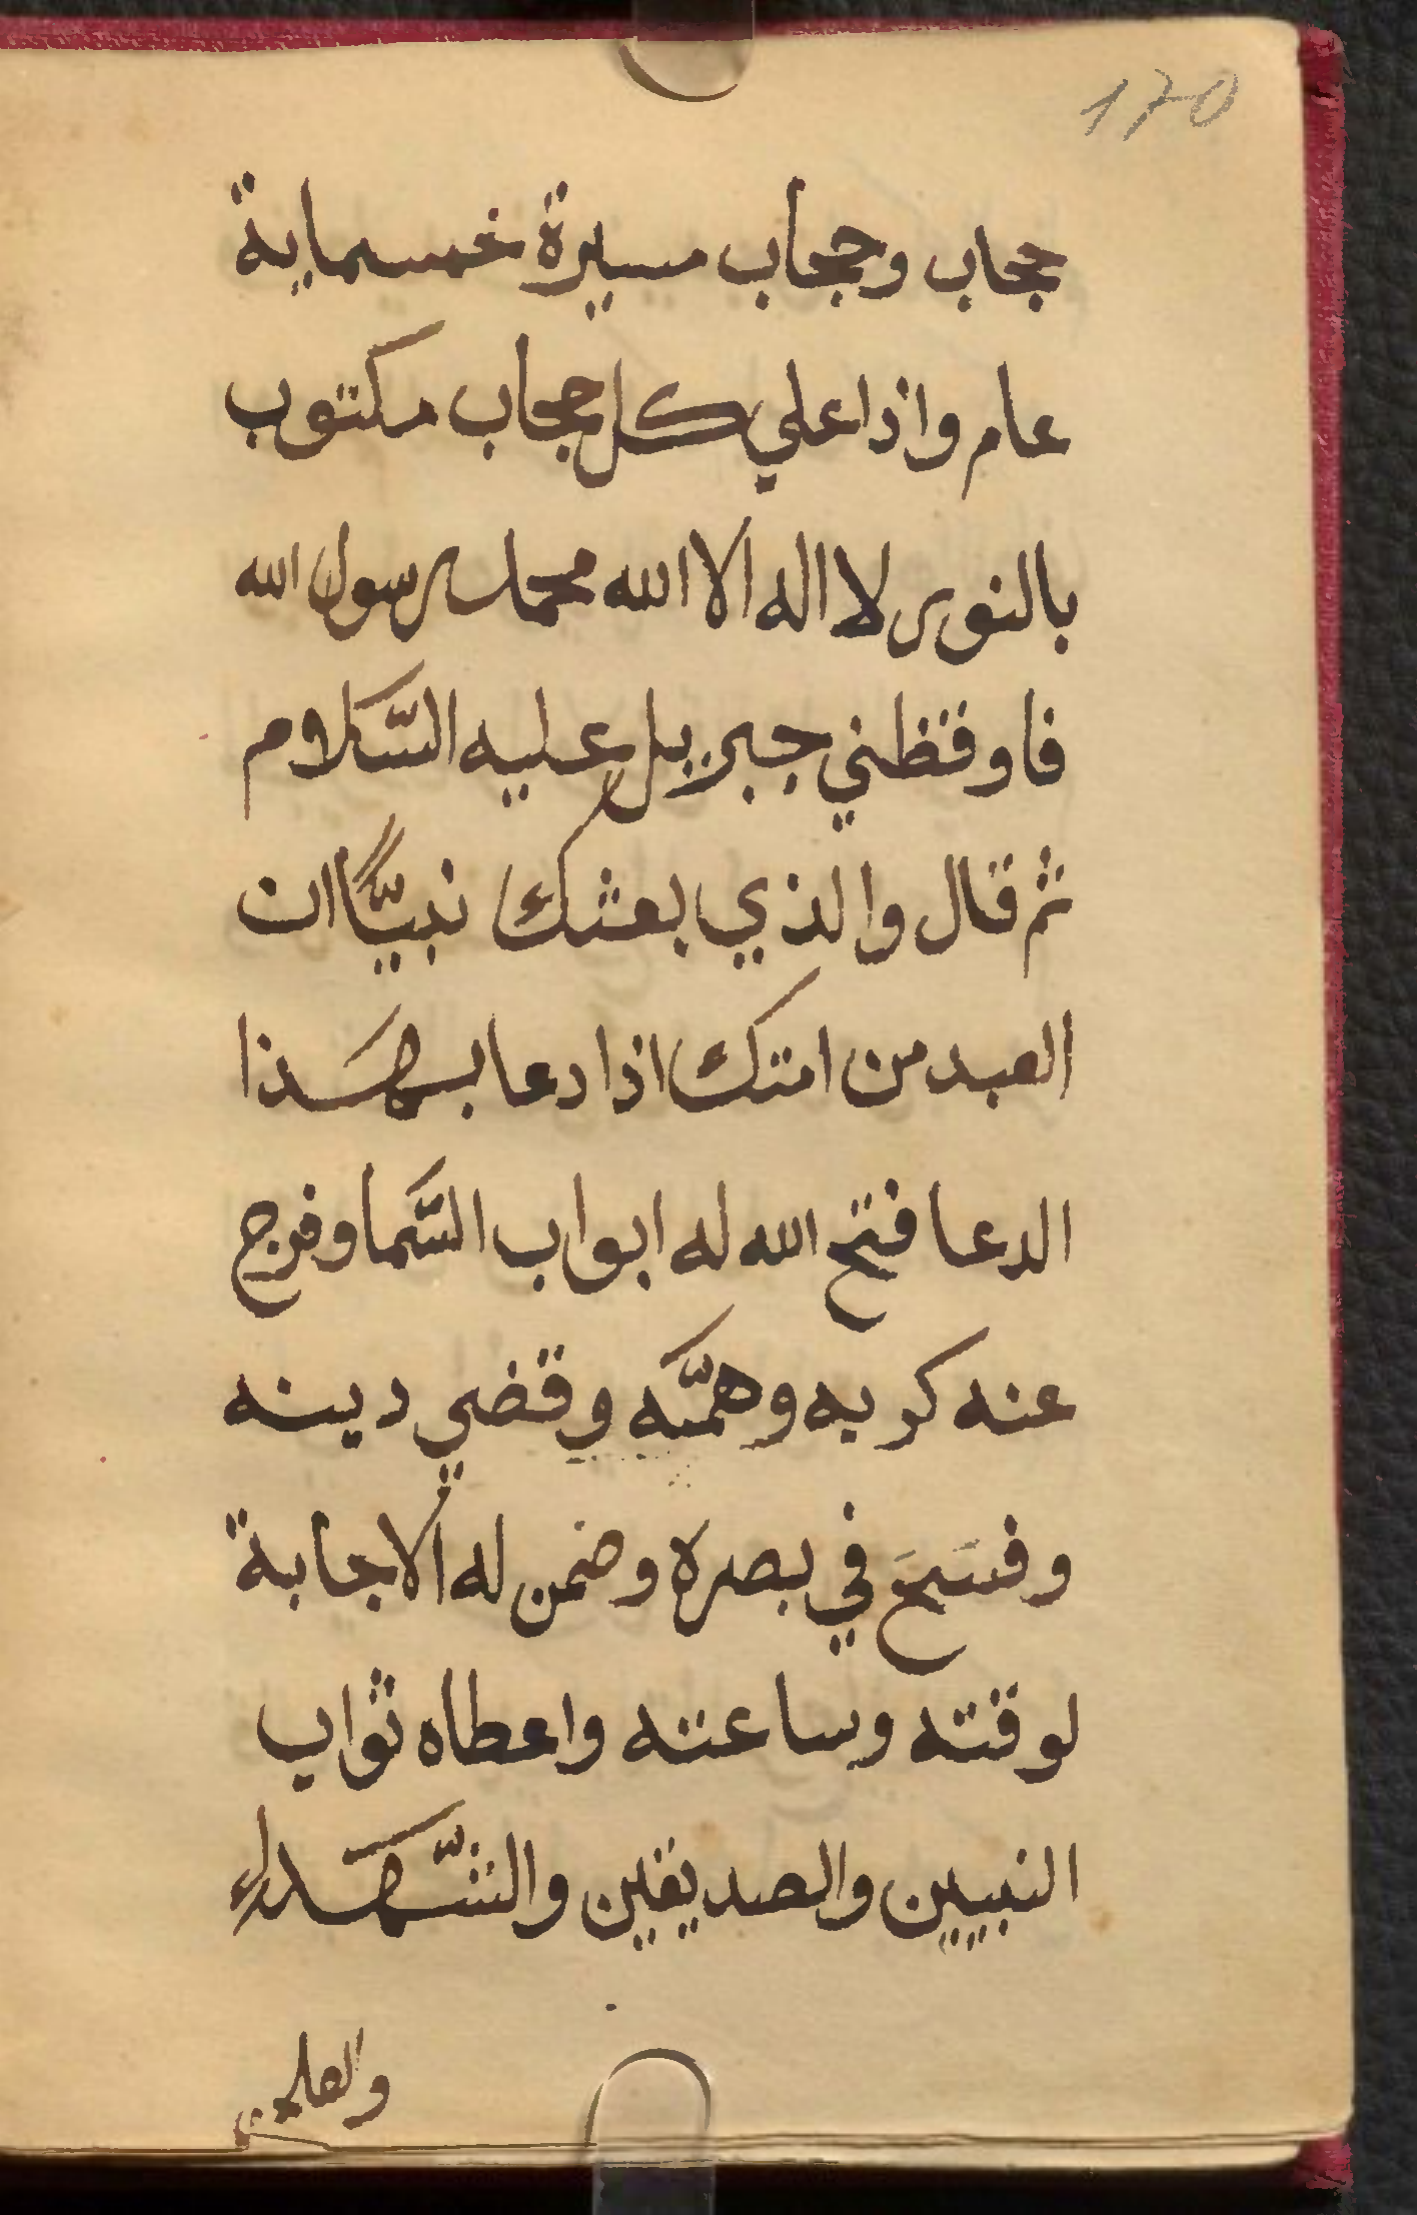 170
حجاب وحجاب مسيرة خمسماية
عام واذا علي كل حجاب مكتوب
بالنور لا اله الا الله محمد رسول الله
فاوقظني جبريل عليه السَّلام
ثم قال والذي بعثك نبيًّا ان
العبد من امتك اذا دعا بهَذا
الدعا فتح الله له ابواب السَّما وفرج
عنه كربه وهمَّه وقضي دينه
وفسَحَ في بصره وضمن له الاجابة
لوقته وساعته واعطاه ثواب
النبيين والصديقين والشَّهَداء